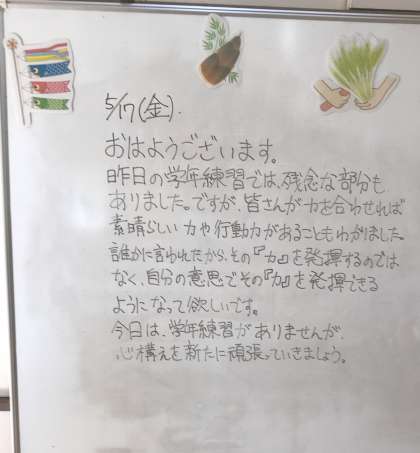 5/17(金).
おはようございます。
昨日の学年練習では、残念な部分も
ありました。ですが、皆さんが力を合わせれば
素晴らしい力や行動力があることもわかりました。
誰かに言われたから、その『力』を発揮するのでは
なく、自分の意思でその『力』を発揮できる
ようになって欲しいです。
今日は、学年練習がありませんが、
心構えを新たに頑張っていきましょう。